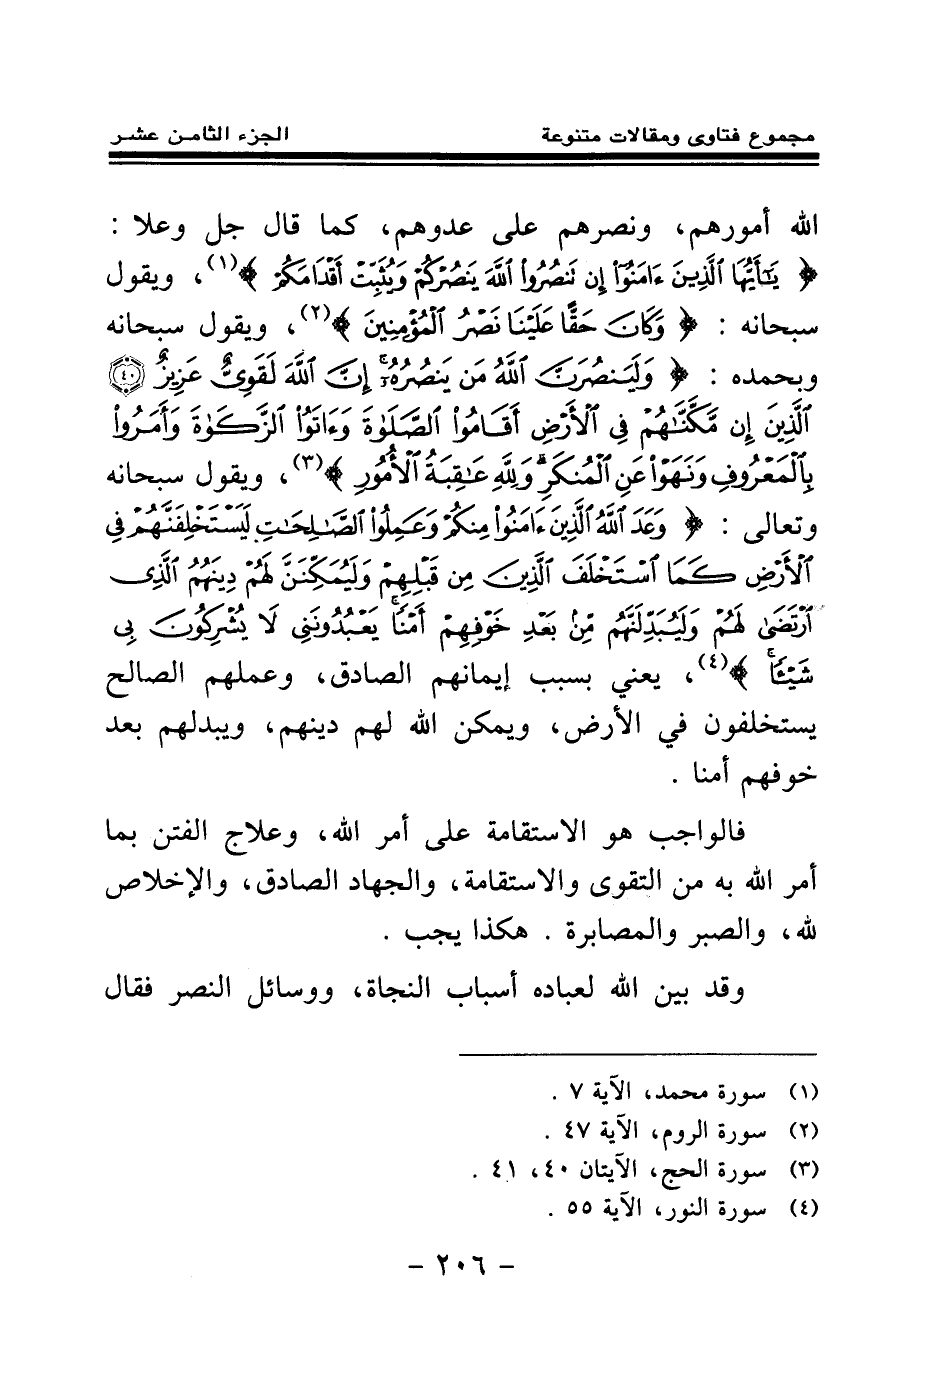 مجموع فتاوى ومقالات متنوعة الجزء الثامن عشر
الله أمورهم، ونصرهم على عدوهم، كما قال جل وعلا :
﴿ يَٰٓأَيُّهَا ٱلَّذِينَ ءَامَنُوٓا۟ إِن تَنصُرُوا۟ ٱللَّهَ يَنصُرْكُمْ وَيُثَبِّتْ أَقْدَامَكُمْ ﴾(١)، ويقول
سبحانه : ﴿ وَكَانَ حَقًّا عَلَيْنَا نَصْرُ ٱلْمُؤْمِنِينَ ﴾(٢)، ويقول سبحانه
وبحمده : ﴿ وَلَيَنصُرَنَّ ٱللَّهُ مَن يَنصُرُهُۥٓ ۗ إِنَّ ٱللَّهَ لَقَوِىٌّ عَزِيزٌ ﴿٤٠﴾
ٱلَّذِينَ إِن مَّكَّنَّٰهُمْ فِى ٱلْأَرْضِ أَقَامُوا۟ ٱلصَّلَوٰةَ وَءَاتَوُا۟ ٱلزَّكَوٰةَ وَأَمَرُوا۟
بِٱلْمَعْرُوفِ وَنَهَوْا۟ عَنِ ٱلْمُنكَرِ ۗ وَلِلَّهِ عَٰقِبَةُ ٱلْأُمُورِ ﴾(٣)، ويقول سبحانه
وتعالى : ﴿ وَعَدَ ٱللَّهُ ٱلَّذِينَ ءَامَنُوا۟ مِنكُمْ وَعَمِلُوا۟ ٱلصَّٰلِحَٰتِ لَيَسْتَخْلِفَنَّهُمْ فِى
ٱلْأَرْضِ كَمَا ٱسْتَخْلَفَ ٱلَّذِينَ مِن قَبْلِهِمْ وَلَيُمَكِّنَنَّ لَهُمْ دِينَهُمُ ٱلَّذِى
ٱرْتَضَىٰ لَهُمْ وَلَيُبَدِّلَنَّهُم مِّنۢ بَعْدِ خَوْفِهِمْ أَمْنًا ۚ يَعْبُدُونَنِى لَا يُشْرِكُونَ بِى
شَيْـًٔا ۚ ﴾(٤)، يعني بسبب إيمانهم الصادق، وعملهم الصالح
يستخلفون في الأرض، ويمكن الله لهم دينهم، ويبدلهم بعد
خوفهم أمنا .
فالواجب هو الاستقامة على أمر الله، وعلاج الفتن بما
أمر الله به من التقوى والاستقامة، والجهاد الصادق، والإخلاص
لله، والصبر والمصابرة . هكذا يجب .
وقد بين الله لعباده أسباب النجاة، ووسائل النصر فقال
(١) سورة محمد، الآية ٧ .
(٢) سورة الروم، الآية ٤٧ .
(٣) سورة الحج، الآيتان ٤٠، ٤١ .
(٤) سورة النور، الآية ٥٥ .
- ٢٠٦ -